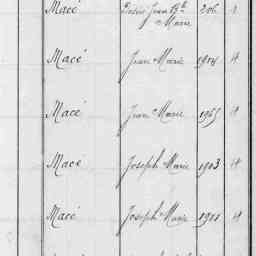 Macé Désiré Jean Bte 206 2
Marie
Macé Jean Marie 1904 4
Macé Jean Marie 1965 4
Macé Joseph Marie 1903 4
Macé Joseph Marie 1911 4